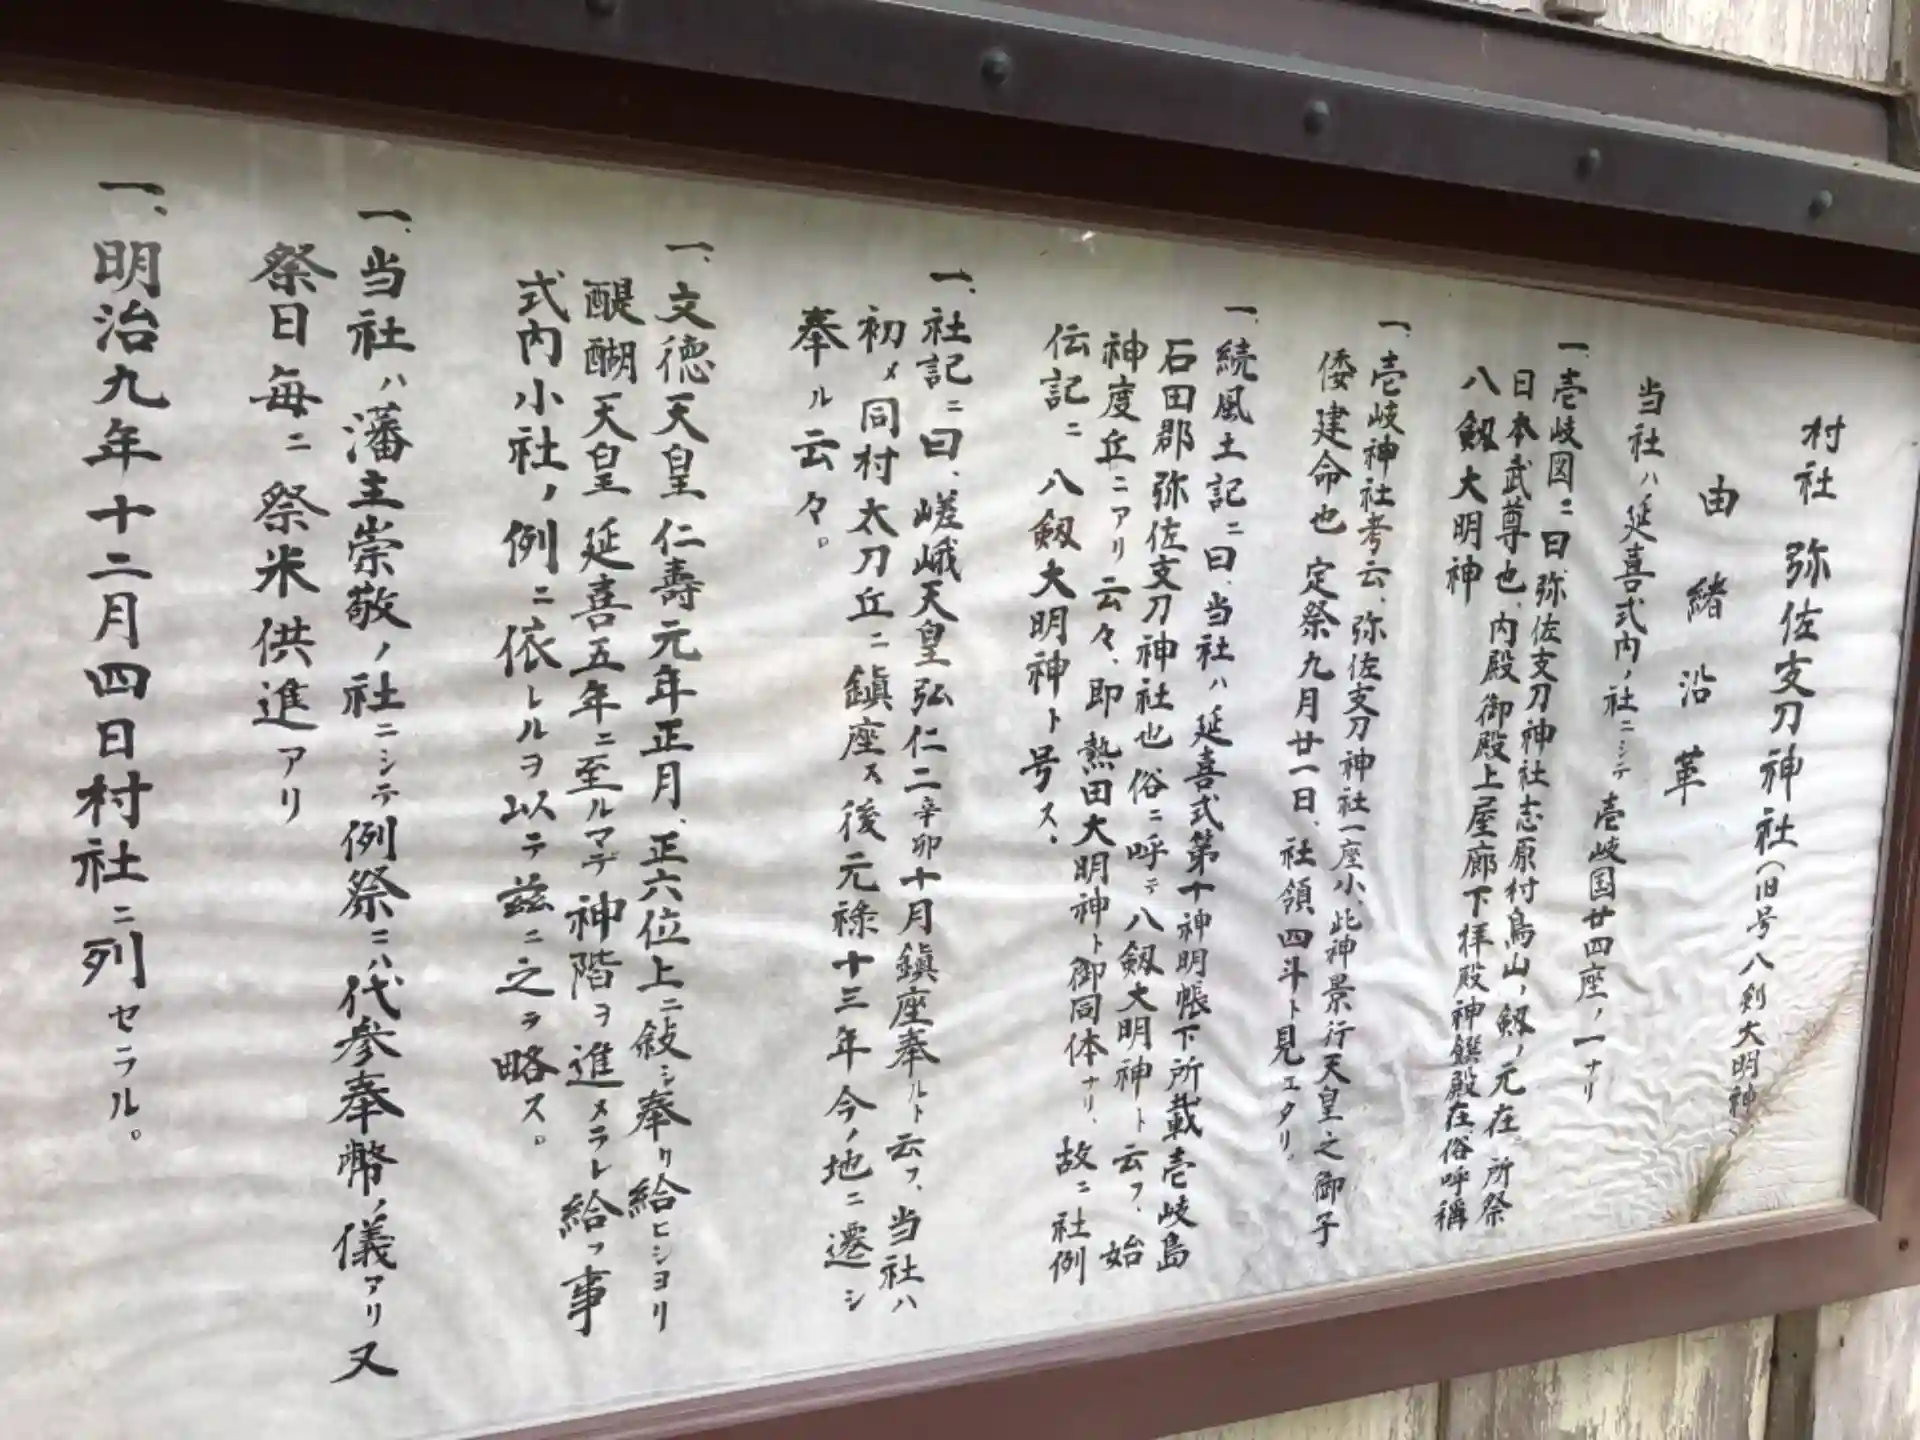 村社 弥佐支刀神社(旧号八剣大明神
由緒沿革
当社ハ延喜式内ノ社ニシテ 壱岐国廿四座ノ一ナリ
一、壱岐図ニ曰、弥佐支刀神社志原村鳥山ノ剱ノ元在。所祭
日本武尊也、内殿御殿上屋廊下拝殿神饌殿在俗呼稱
八剱大明神
一、壱岐神社考云、弥佐支刀神社一座小、此神景行天皇之御子
倭建命也 定祭九月廿一日、社領四斗ト見エタリ。
一、続風土記ニ曰、当社ハ延喜式第十神明帳下所載壱岐島
石田郡弥佐支刀神社也俗ニ呼テ八剱大明神ト云フ、始
神度丘ニアリ云々、即熱田大明神ト御同体ナリ、故ニ社例
伝記ニ 八剱大明神ト号ス、
一、社記ニ曰、嵯峨天皇弘仁二辛卯十月鎮座奉ルト云フ、当社ハ
初メ同村太刀丘ニ鎮座ス後元祿十三年今ノ地ニ遷シ
奉ル云々。
一、文徳天皇仁壽元年正月、正六位上ニ敍シ奉リ給ヒシヨリ
醍醐天皇延喜五年ニ至ルマデ神階ヲ進メラレ給フ事
式内小社ノ例ニ依レルヲ以テ茲ニ之ラ略ス。
一、当社ハ藩主崇敬ノ社ニシテ例祭ニハ代参奉幣ノ儀アリ又
祭日毎ニ祭米供進アリ
一、明治九年十二月四日村社ニ列セラル。